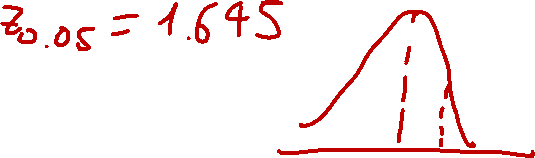 z0.05 = 1.645